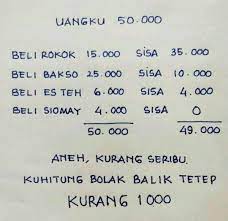 UANGKU 50.000
BELI ROKOK 15.000 SISA 35.000
BELI BAKSO 25.000 SISA 10.000
BELI ES TEH 6.000 SISA 4.000
BELI SIOMAY 4.000 SISA 0
50.000 49.000
ANEH, KURANG SERIBU.
KUHITUNG BOLAK BALIK TETEP
KURANG 1000